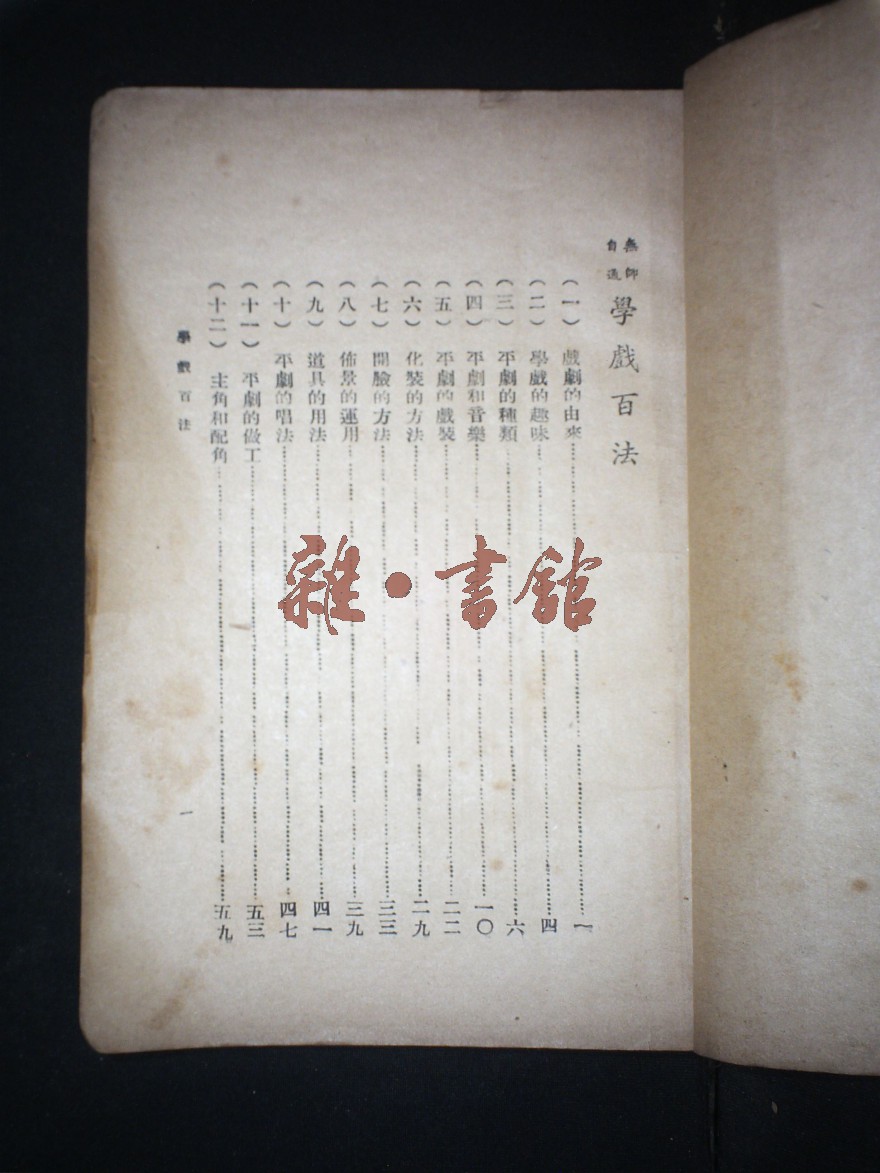 無師
自通
學戲百法
(一) 戲劇的由來……一
(二) 學戲的趣味……四
(三) 平劇的種類……六
(四) 平劇和音樂……一〇
(五) 平劇的戲裝……二二
(六) 化裝的方法……二九
(七) 開臉的方法……三三
(八) 佈景的運用……三九
(九) 道具的用法……四一
(十) 平劇的唱法……四七
(十一) 平劇的做工……五三
(十二) 主角和配角……五九
學戲百法
一
雜·書館